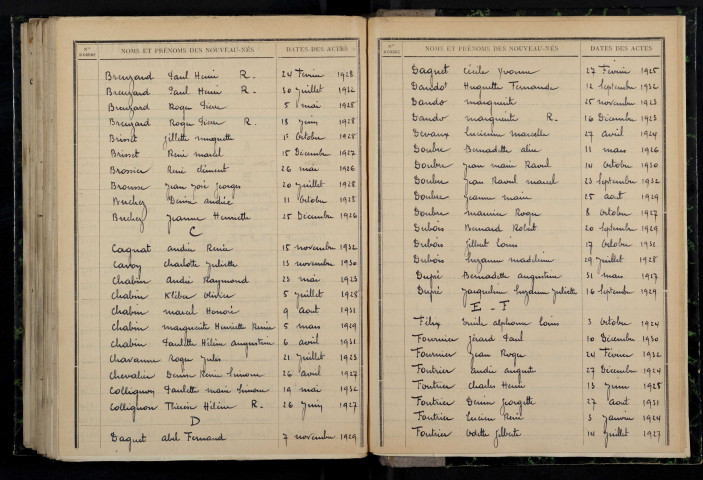 Nos D'ORDRE NOMS ET PRÉNOMS DES NOUVEAU-NÉS DATES DES ACTES
Breuzard Paul Henri R. 24 Février 1928
Breuzard Paul Henri R. 30 Juillet 1932
Breuzard Roger Pierre 5 mai 1928
Breuzard Roger Pierre R. 18 Juin 1928
Brisset Gillette muguette 1er Octobre 1928
Brisset René marcel 15 Décembre 1927
Brossier René clément 26 mai 1926
Brousse Jean José Georges 20 Juillet 1928
Buchez Denise andrée 11 Octobre 1928
Buchez Jeanne Henriette 25 Décembre 1926
C
Cagnat andrée Renée 15 novembre 1932
Cavoy charlotte Juliette 13 novembre 1930
Chabin André Raymond 23 mai 1923
Chabin Kléber Olivier 5 Juillet 1928
Chabin marcel Honoré 9 aout 1931
Chabin marguerite Henriette Renée 5 mars 1929
Chabin Paulette Hélène augustine 6 avril 1931
Chavanne Roger Jules 21 Juillet 1923
Chevalier Denise Renée Simone 26 avril 1927
Collignon Paulette marie Simone 19 mai 1932
Collignon Thérèse Hélène R. 26 Juin 1927
D
Daguet abel Fernand 7 novembre 1929
Nos D'ORDRE NOMS ET PRÉNOMS DES NOUVEAU-NÉS DATES DES ACTES
Daguet Cécile Yvonne 27 Février 1925
Dando Huguette Fernande 12 Septembre 1932
Dando marguerite 25 novembre 1923
Dando marguerite R. 16 Décembre 1923
Devaux Lucienne marcelle 27 avril 1924
Doubre Bernadette aline 11 mars 1926
Doubre Jean marie Raoul 14 Octobre 1930
Doubre Jean Raoul marcel 23 Septembre 1932
Doubre Jeanne marie 25 aout 1929
Doubre maurice Roger 8 octobre 1927
Dubois Bernard Robert 20 Septembre 1929
Dubois Gilbert Louis 17 Octobre 1931
Dubois Suzanne madeleine 29 Juillet 1928
Dupré Bernadette augustine 31 mars 1927
Dupré Jacqueline Suzanne Juliette 16 Septembre 1929
E - F
Félix Emile alphonse Louis 3 Octobre 1924
Fournier Gérard Paul 10 Décembre 1930
Fournier Jean Roger 24 Février 1932
Foutrier andré august 27 Décembre 1924
Foutrier Charles Henri 13 Juin 1928
Foutrier Denise Georgette 27 aout 1931
Foutrier Lucien René 3 Janvier 1924
Foutrier Odette Gilberte 14 Juillet 1927